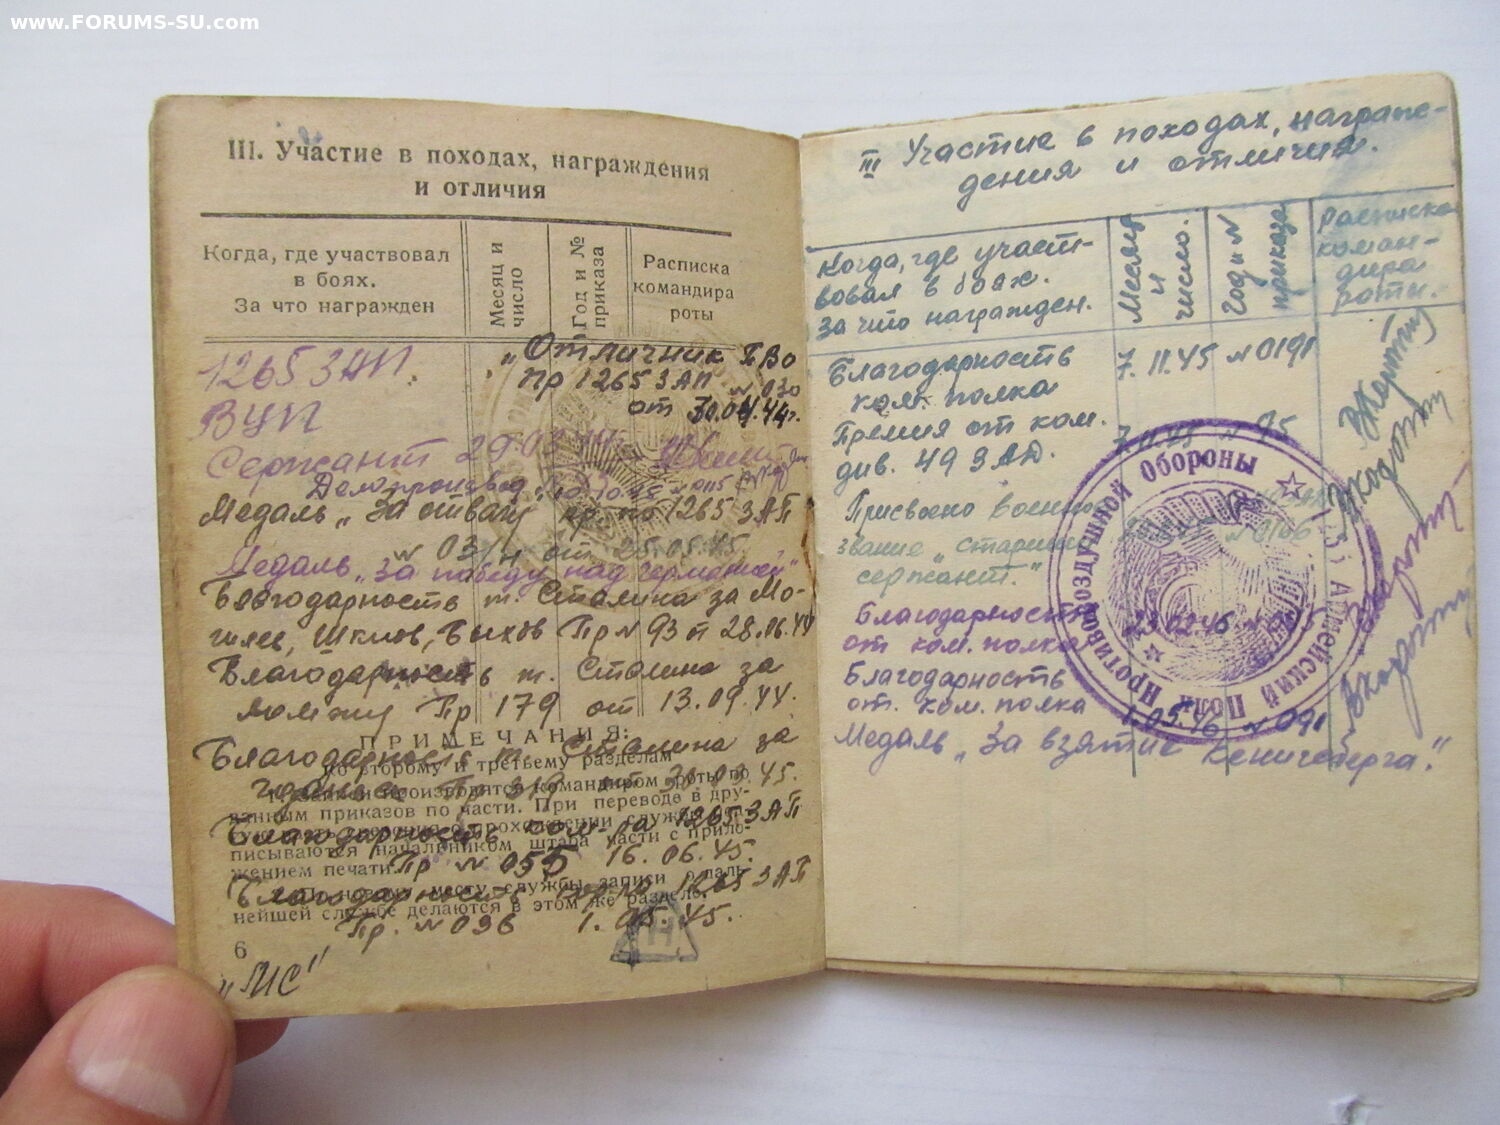 www.FORUMS-SU.com
III. Участие в походах, награждения
и отличия
Когда, где участвовал
в боях.
За что награжден
Месяц и
число
Год и №
приказа
Расписка
командира
роты
1265 ЗАП.
„Отличник ПВО
Пр 1265 ЗАП № 030
от 30.04.44г.
Сержант
Делопроизвод.
Медаль „За отвагу" пр. по 1265 ЗАП
от 25.05.45.
Медаль „За победу над германией"
Благодарность т. Сталина за Мо-
гилев, Шклов, Быхов Пр № 93 от 28.06.44
Благодарность т. Сталина за
Ломжу Пр 179 от 13.09.44.
ПРИМЕЧАНИЯ:
ко второму и третьему разделам
Благодарность т. Сталина за
Гданьск Пр 319 от 30.03.45.
1. Записи производятся командиром роты по
данным приказов по части. При переводе в дру-
писываются начальником штаба части с прило-
жением печати.
Благодарность ком-ра 1265 ЗАП
Пр № 055 16.06.45.
службы записи о даль-
нейшей службе делаются в этом же разделе.
Благодарность 1265 ЗАП
Пр. № 096 45.
6
III Участие в походах, награж-
дения и отличия.
Когда, где участ-
вовал в боях.
За что награжден.
Месяц
и
число.
Год и №
приказа
Расписка
коман-
дира
роты.
Благодарность 7.11.45 № 0191
ком. полка
Премия от ком. 7.11.45 № 95
див. 49 ЗАД.
Присвоено воен
звание „старший № 0166
сержант."
Благодарность 23.02.46
от ком. полка
Благодарность
от. ком. полка 1.05.46 № 091
Медаль „За взятие Кенигсберга."
Армейский Полк Противовоздушной Обороны